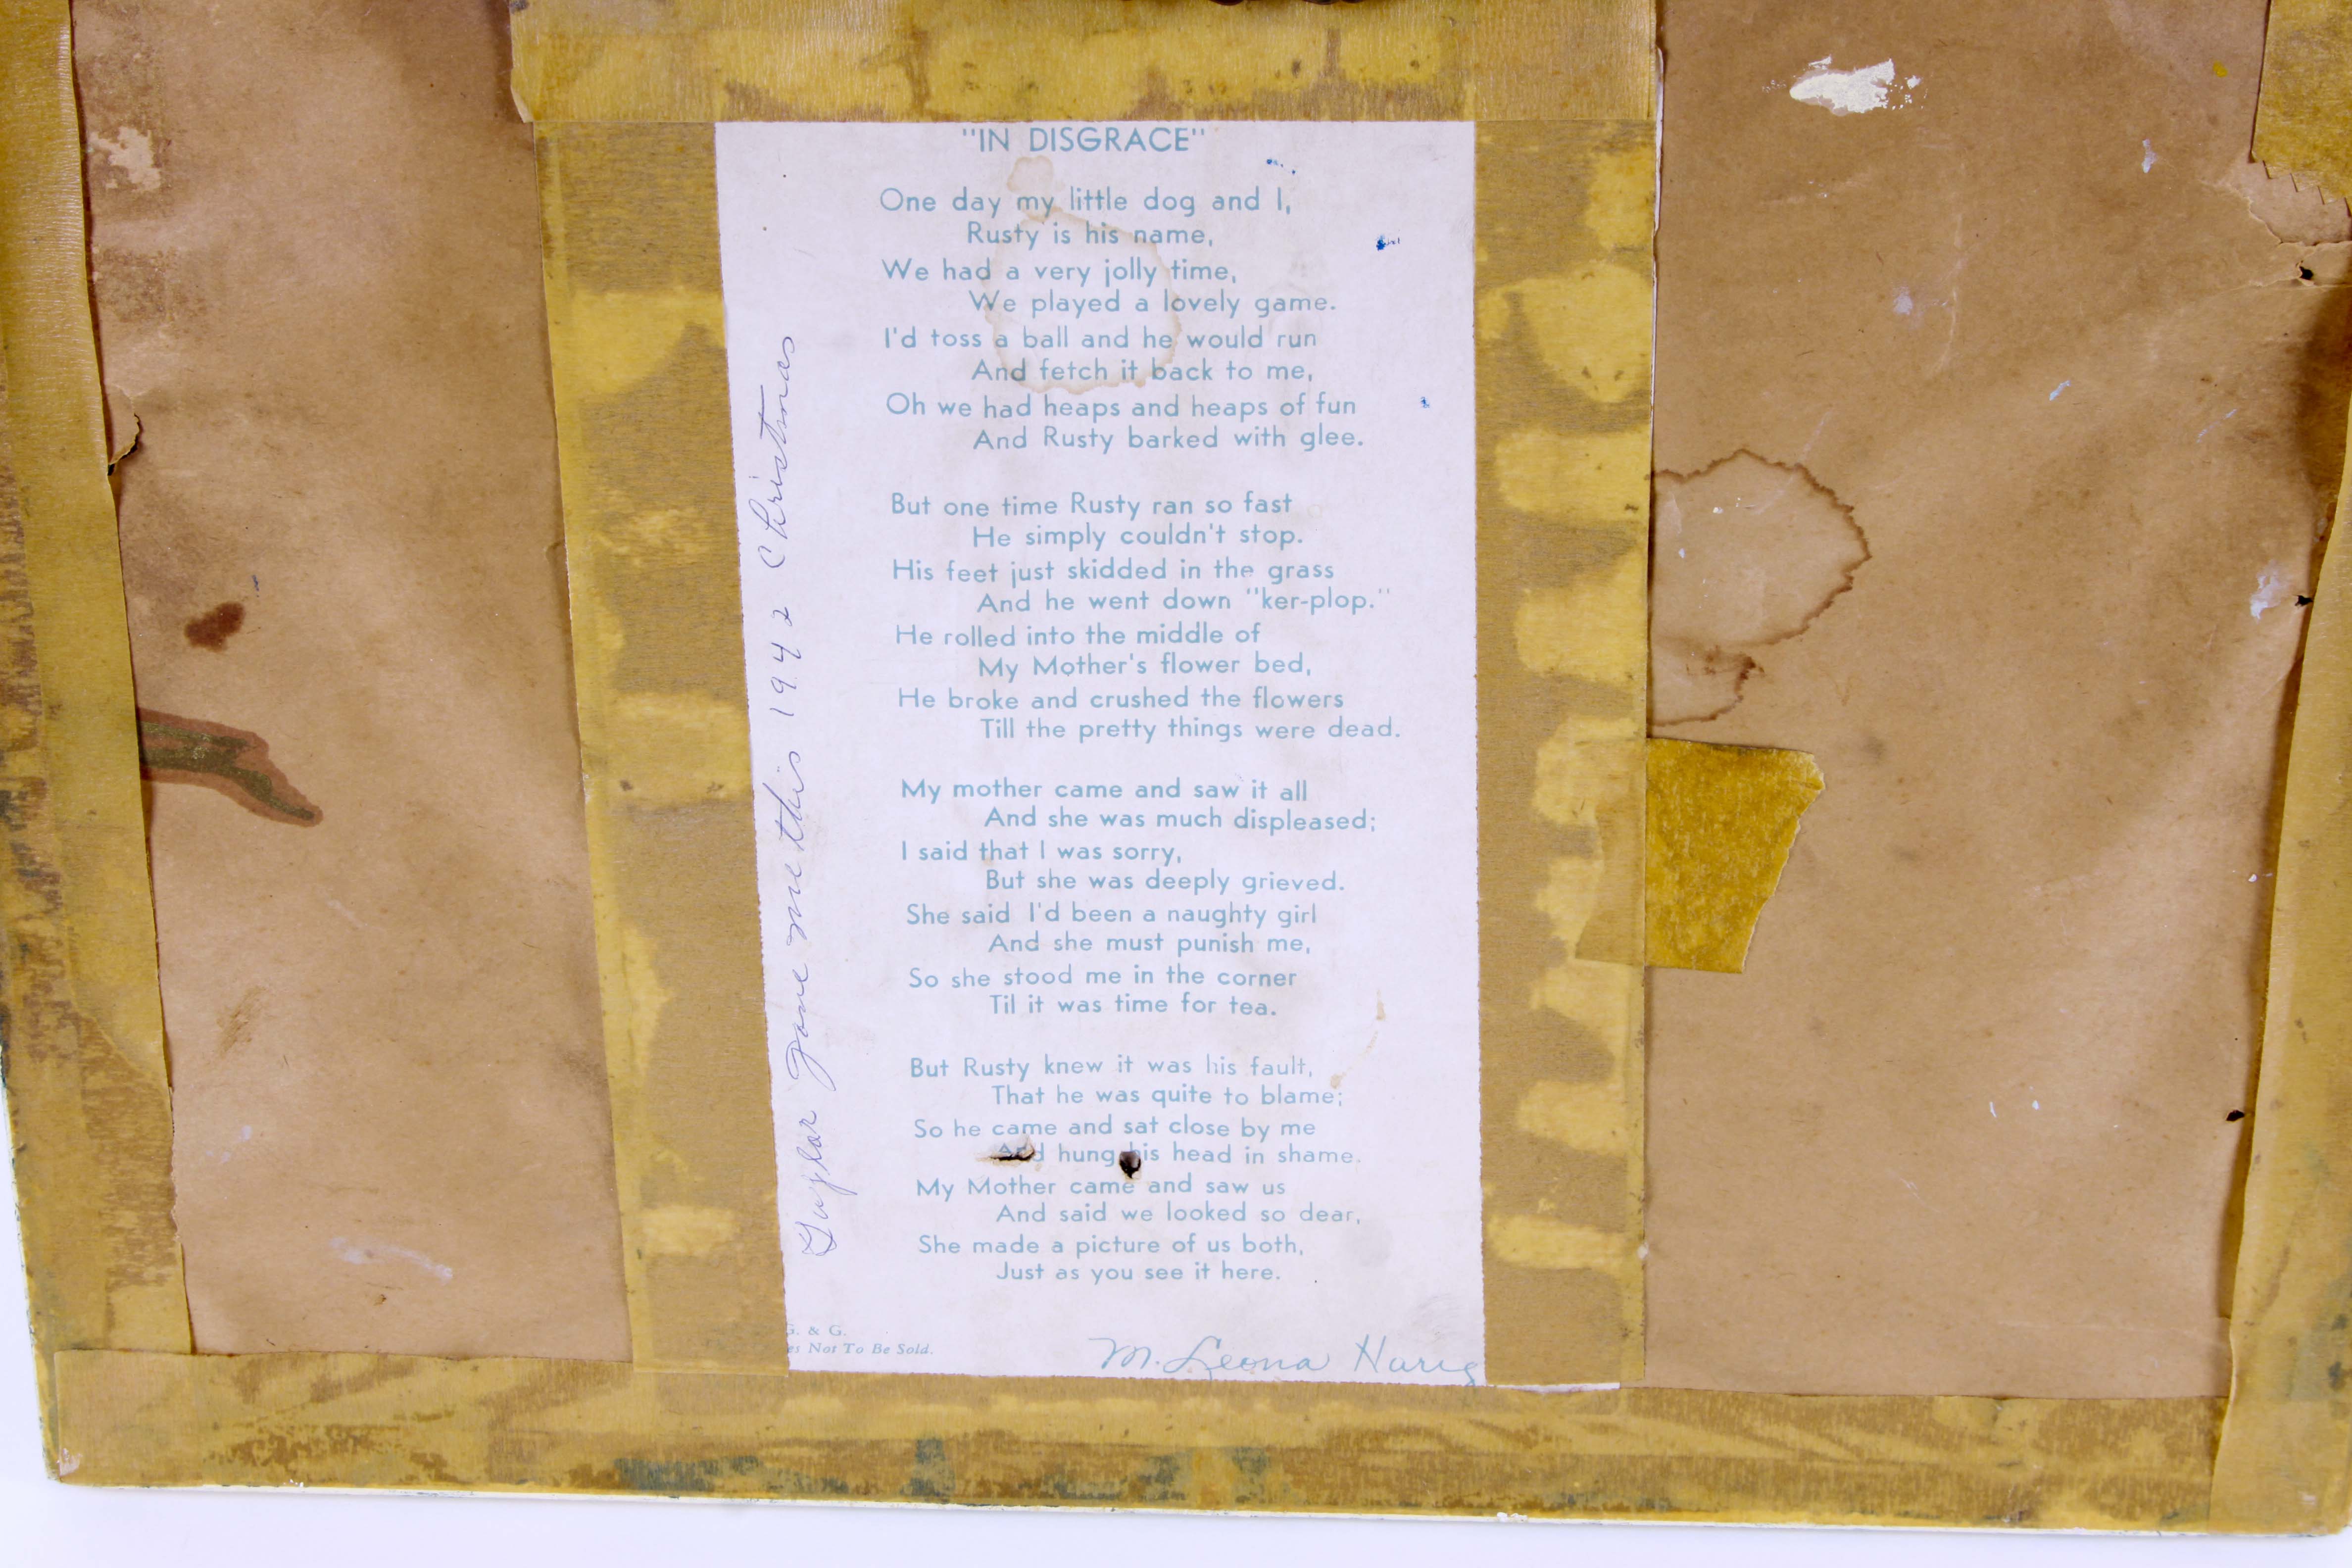 "IN DISGRACE"
One day my little dog and I,
Rusty is his name,
We had a very jolly time,
We played a lovely game.
I'd toss a ball and he would run
And fetch it back to me,
Oh we had heaps and heaps of fun
And Rusty barked with glee.
But one time Rusty ran so fast
He simply couldn't stop.
His feet just skidded in the grass
And he went down "ker-plop."
He rolled into the middle of
My Mother's flower bed,
He broke and crushed the flowers
Till the pretty things were dead.
My mother came and saw it all
And she was much displeased;
I said that I was sorry,
But she was deeply grieved.
She said I'd been a naughty girl
And she must punish me,
So she stood me in the corner
Til it was time for tea.
But Rusty knew it was his fault,
That he was quite to blame;
So he came and sat close by me
And hung his head in shame.
My Mother came and saw us
And said we looked so dear,
She made a picture of us both,
Just as you see it here.
G. & G.
es Not To Be Sold.
M. Leona Harig
gave me this 1942 Christmas